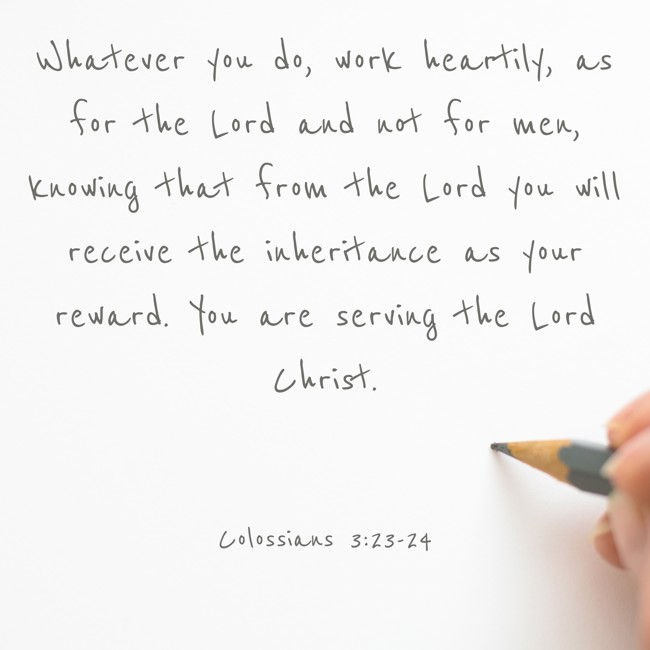 Whatever you do, work heartily, as
for the Lord and not for men,
knowing that from the Lord you will
receive the inheritance as your
reward. You are serving the Lord
Christ.
Colossians 3:23-24